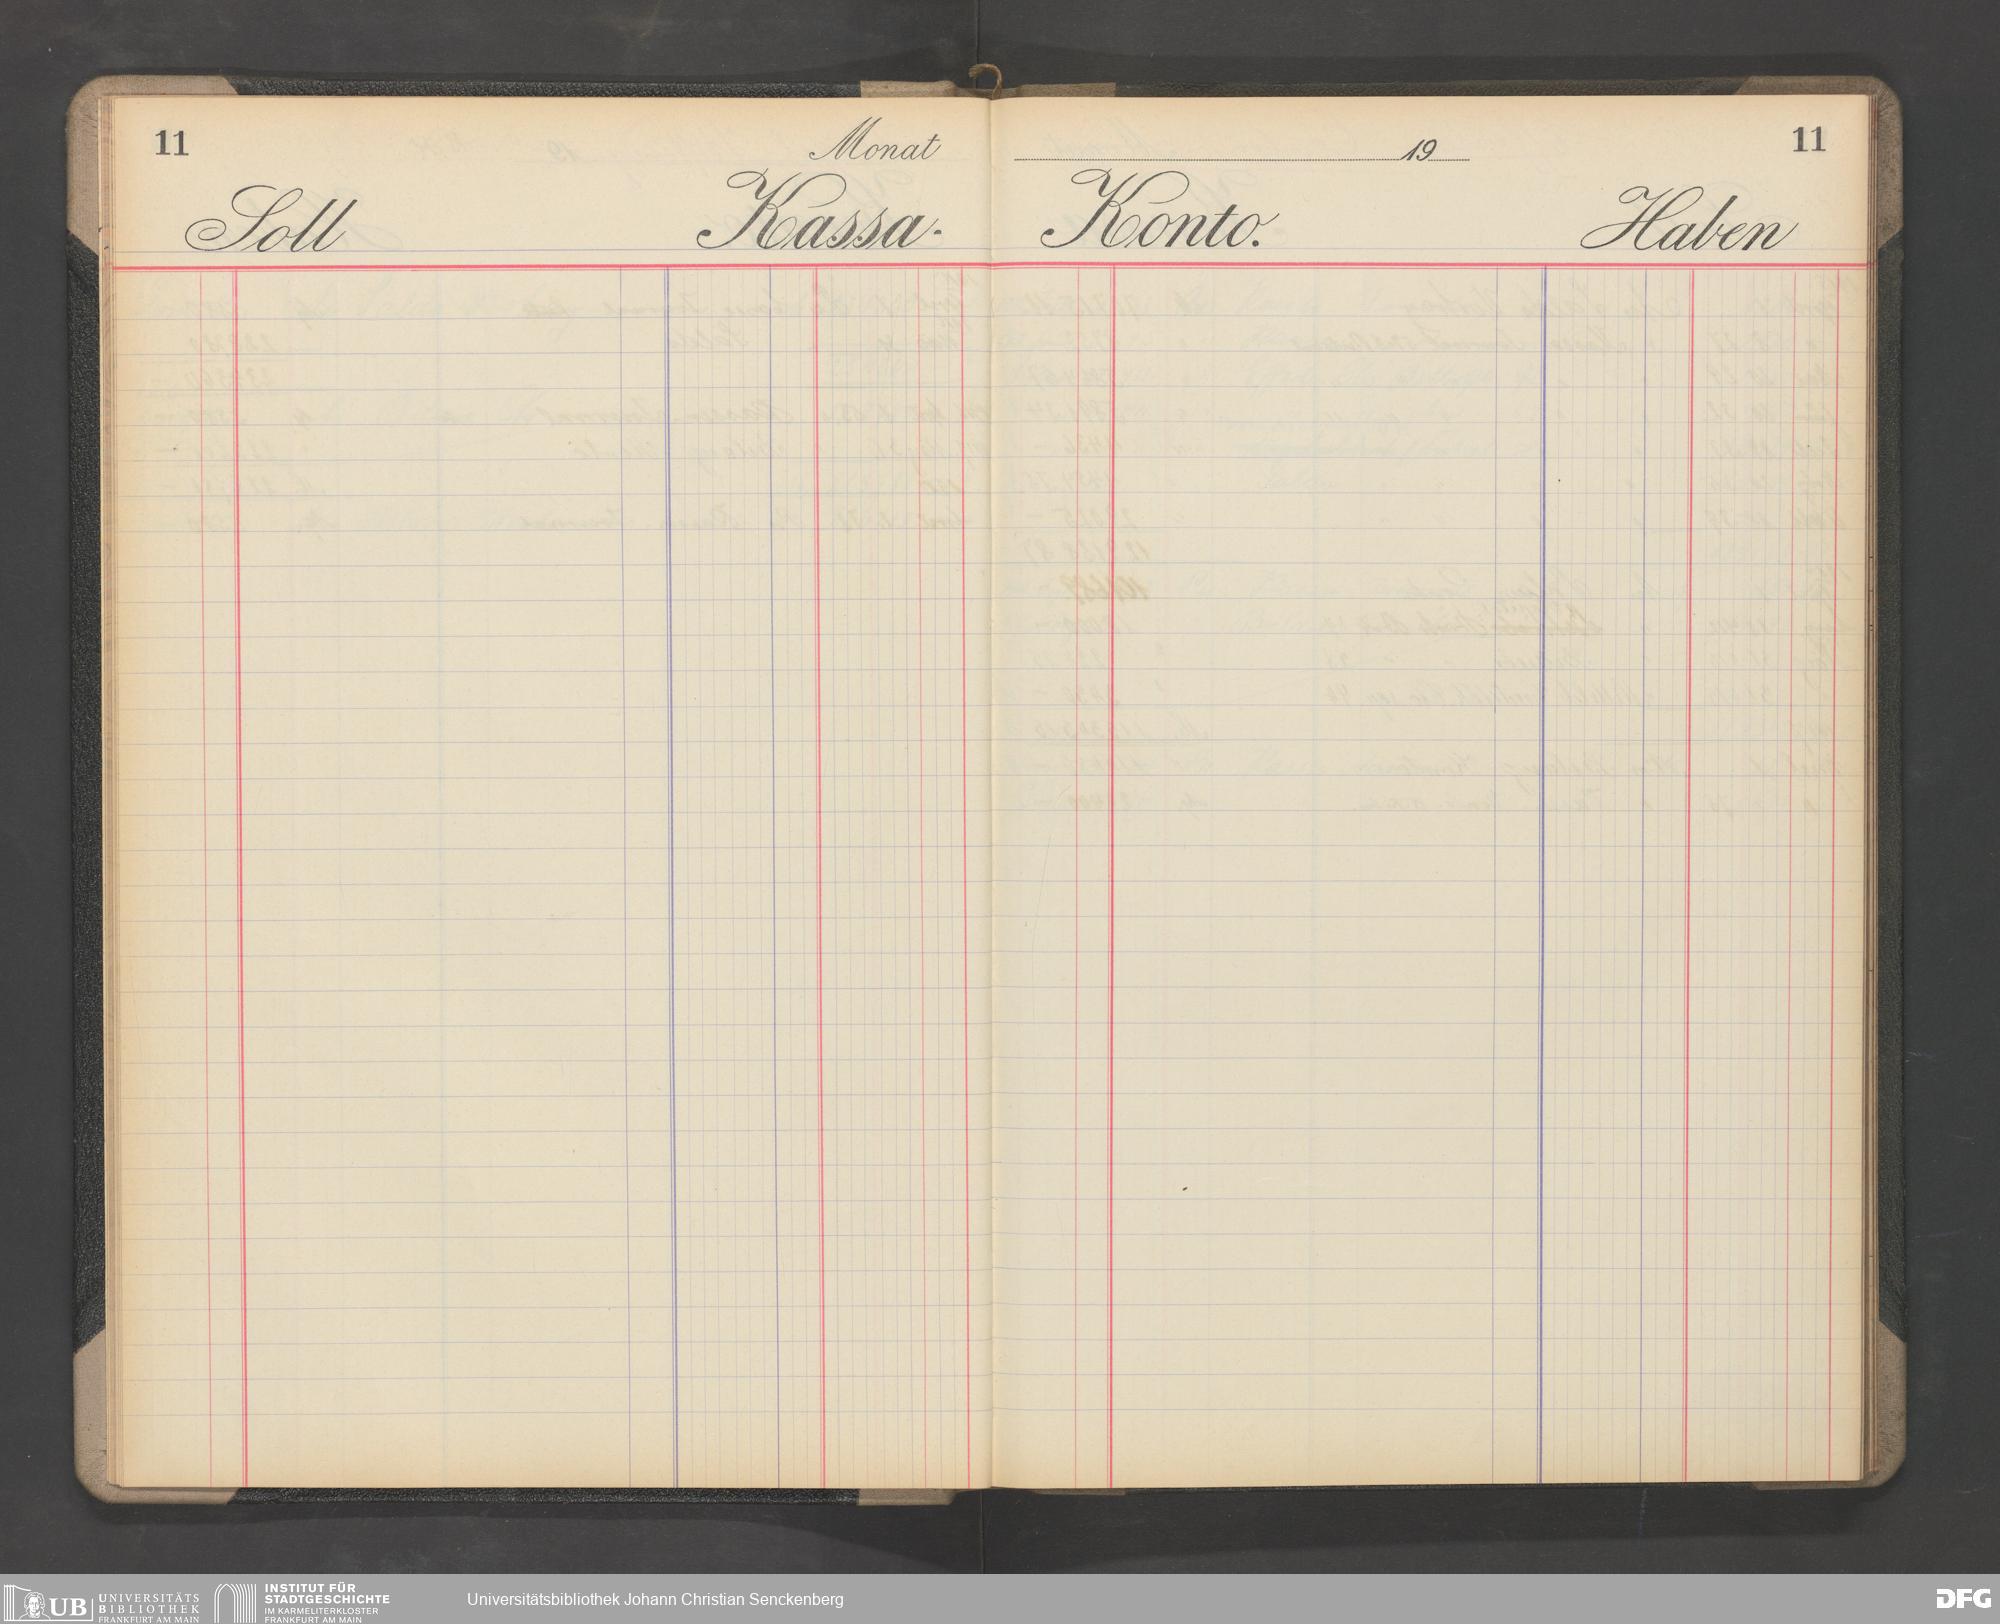 11
Monat
19
11
Soll
Kassa-
Konto.
Haben
UB UNIVERSITÄTS
BIBLIOTHEK
FRANKFURT AM MAIN
INSTITUT FÜR
STADTGESCHICHTE
IM KARMELITERKLOSTER
FRANKFURT AM MAIN
Universitätsbibliothek Johann Christian Senckenberg
DFG